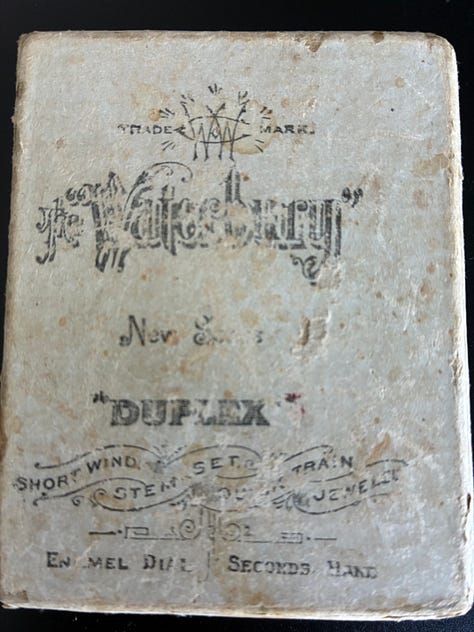 TRADE MARK.
The "Waterbury"
New Series
"DUPLEX"
SHORT WIND. SET. TRAIN
STEM QUICK JEWELED
ENAMEL DIAL SECONDS HAND